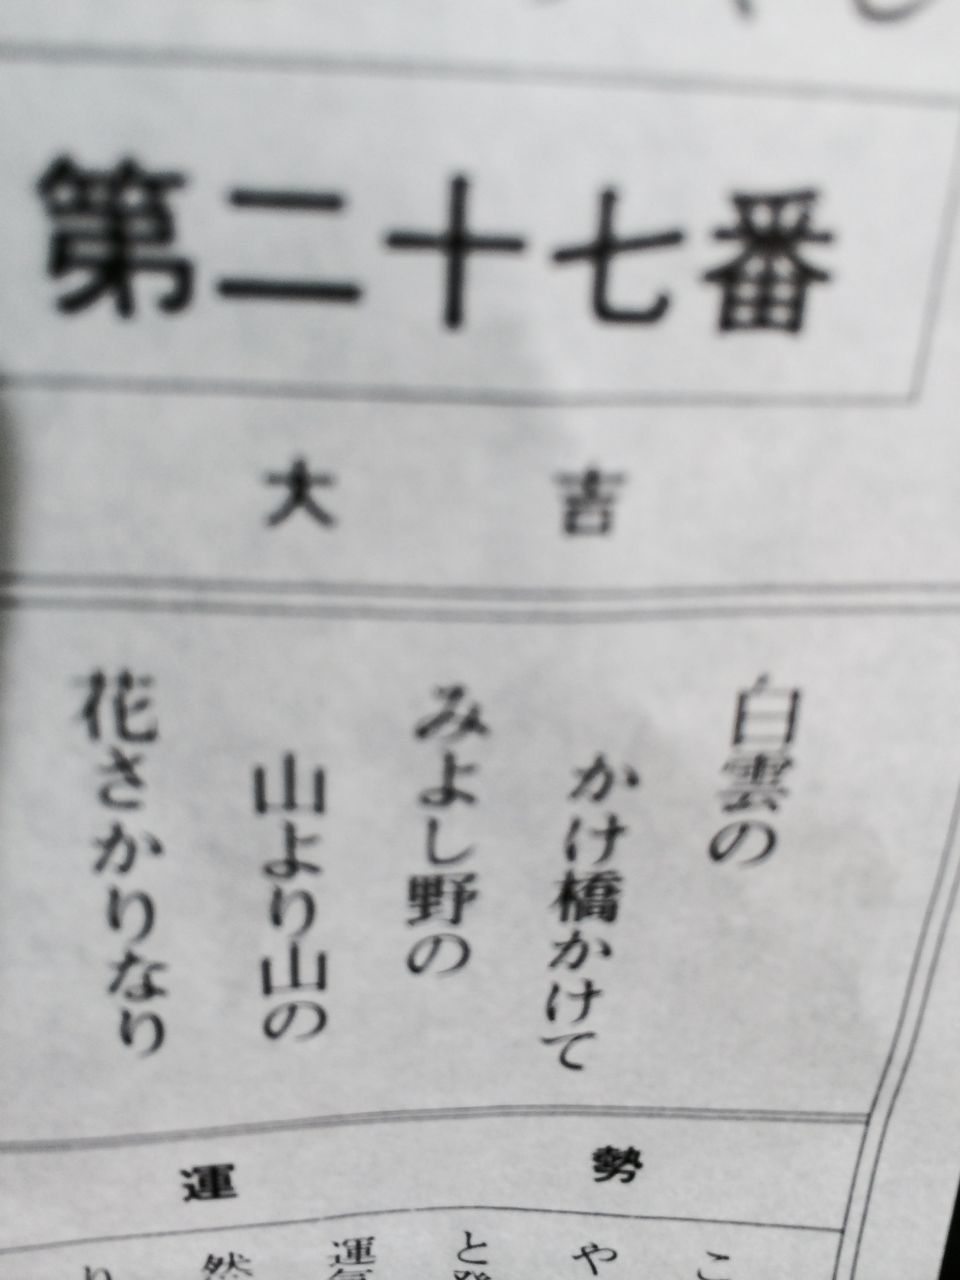 第二十七番
大吉
白雲の
かけ橋かけて
みよし野の
山より山の
花さかりなり
運勢
こ
や
と
運
然
り